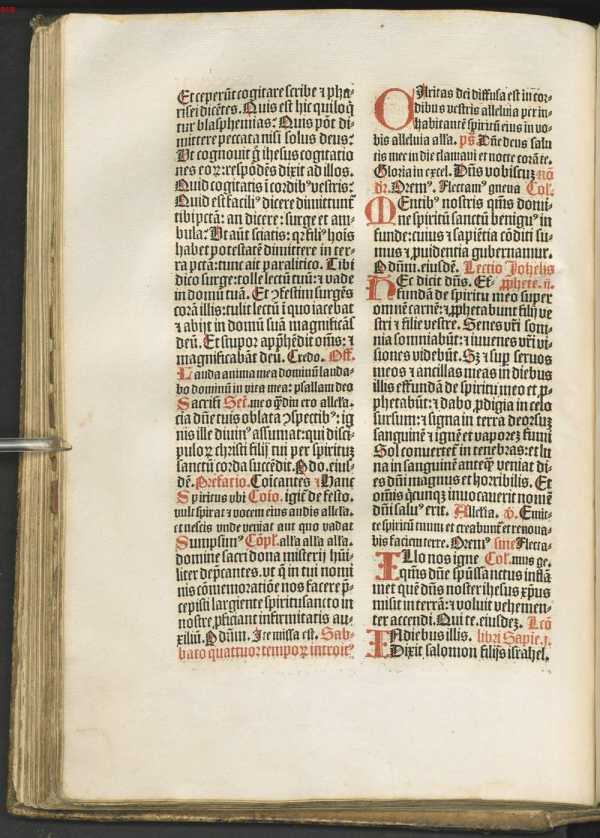 Et ceperũt cogitare scribe ⁊ pha-
risei dicẽtes. Quis est hic qui loq̃
tur blasphemias: Quis põt di-
mittere peccata nisi solus deus:
Ut cognouit q̃ ihesus cogitatio
nes eoꝝ: respõdẽs dixit ad illos.
Quid cogitatis ĩ cordibꝰ vestris:
Quid est faciliꝰ dicere dimittunt̃
tibi pctã: an dicere: surge et am-
bula: Ut aũt sciatis: q̃ filiꝰ hoĩs
habet potestatẽ dimittere in ter-
ra pctã: tunc ait paralitico. Tibi
dico surge: tolle lectũ tuũ: ⁊ vade
in domũ tuã. Et ꝯfestim surgẽs
corã illis: tulit lectũ ĩ quo iacebat
⁊ abijt in domũ suã magnificãs
deũ. Et stupor apprehẽdit om̃s: ⁊
magnificabãt deũ. Credo. Off.
Lauda anima mea dominũ lauda-
bo dominũ in vita mea: psallam deo
Sacrifi Sec̃. meo q̃diu ero alleĩa.
cia dñe tuis oblata ꝯspectibꝰ: ig
nis ille diuinꝰ assumat: qui disci-
puloꝝ christi filij tui per spirituꝫ
sanctũ corda succẽdit. P dõ. eius-
dẽ. Prefatio. Cõicantes ⁊ Hanc
Spiritus vbi Cõio. igit̃ de festo.
vult spirat ⁊ vocem eius audis alleĩa.
et nescis vnde veniat aut quo vadat
Sumpsimꝰ Cõpl̃. alla alla alla.
domine sacri dona misterij hũi-
liter dep̃cantes. vt q̃ in tui nomi
nis cõmemoratiõe nos facere p̃-
cepisti largiente spiritusancto in
nostre ꝓficiant infirmitatis au-
xiliũ. P dñum. Ite missa est. Sab-
bato quattuor tempoꝝ introitꝰ
CAritas dei diffusa est in cor-
dibus vestris alleluia per in-
habitantẽ spiritũ eius in vo-
bis alleluia alla. ps̃. Dñe deus salu
tis mee in die clamaui et nocte corã te.
Gloria in excel. Dñs vobiscuꝫ nõ
dr̃. Oremꝰ. Flectamꝰ genua Col̃.
MEntibꝰ nostris qm̃s domi-
ne spiritũ sanctũ benignꝰ in
funde: cuius ⁊ sapiẽtia cõditi su-
mus ⁊ ꝓuidentia gubernamur.
P dñum. eiusdẽ. Lectio Johelis
HEc dicit dñs. Eff̃ ꝓphete. ii.
fundã de spiritu meo super
omnẽ carnẽ: ⁊ ꝓphetabunt filij ve
stri ⁊ filie vestre. Senes vr̃i som-
nia somniabũt: ⁊ iuuenes vr̃i vi-
siones videbũt. Sꝫ ⁊ sup seruos
meos ⁊ ancillas meas in diebus
illis effundã de spiritu meo et ꝓ-
phetabũt: ⁊ dabo ꝓdigia in celo
sursum: ⁊ signa in terra deorsuꝫ
sanguinẽ ⁊ ignẽ et vaporeꝫ fumi
Sol conuertet̃ in tenebras: et lu
na in sanguinẽ anteq̃ veniat di-
es dñi magnus et horribilis. Et
om̃is q̃unqꝫ inuocauerit nomẽ
dñi saluꝰ erit. Alleĩa. v̓. Emit-
te spiritũ tuum et creabunt̃ et renoua-
bis faciem terre. Oremꝰ sine Flecta-
ILlo nos igne Col̃. mus ge.
q̃m̃s dñe spũssanctus inflã
met quẽ dñs noster ihesus xp̃us
misit in terrã: ⁊ voluit vehemen-
ter accendi. Qui te. eiusdeꝫ. Lcõ
IN diebus illis. libri Sapie. j.
Dixit salomon filijs israhel.